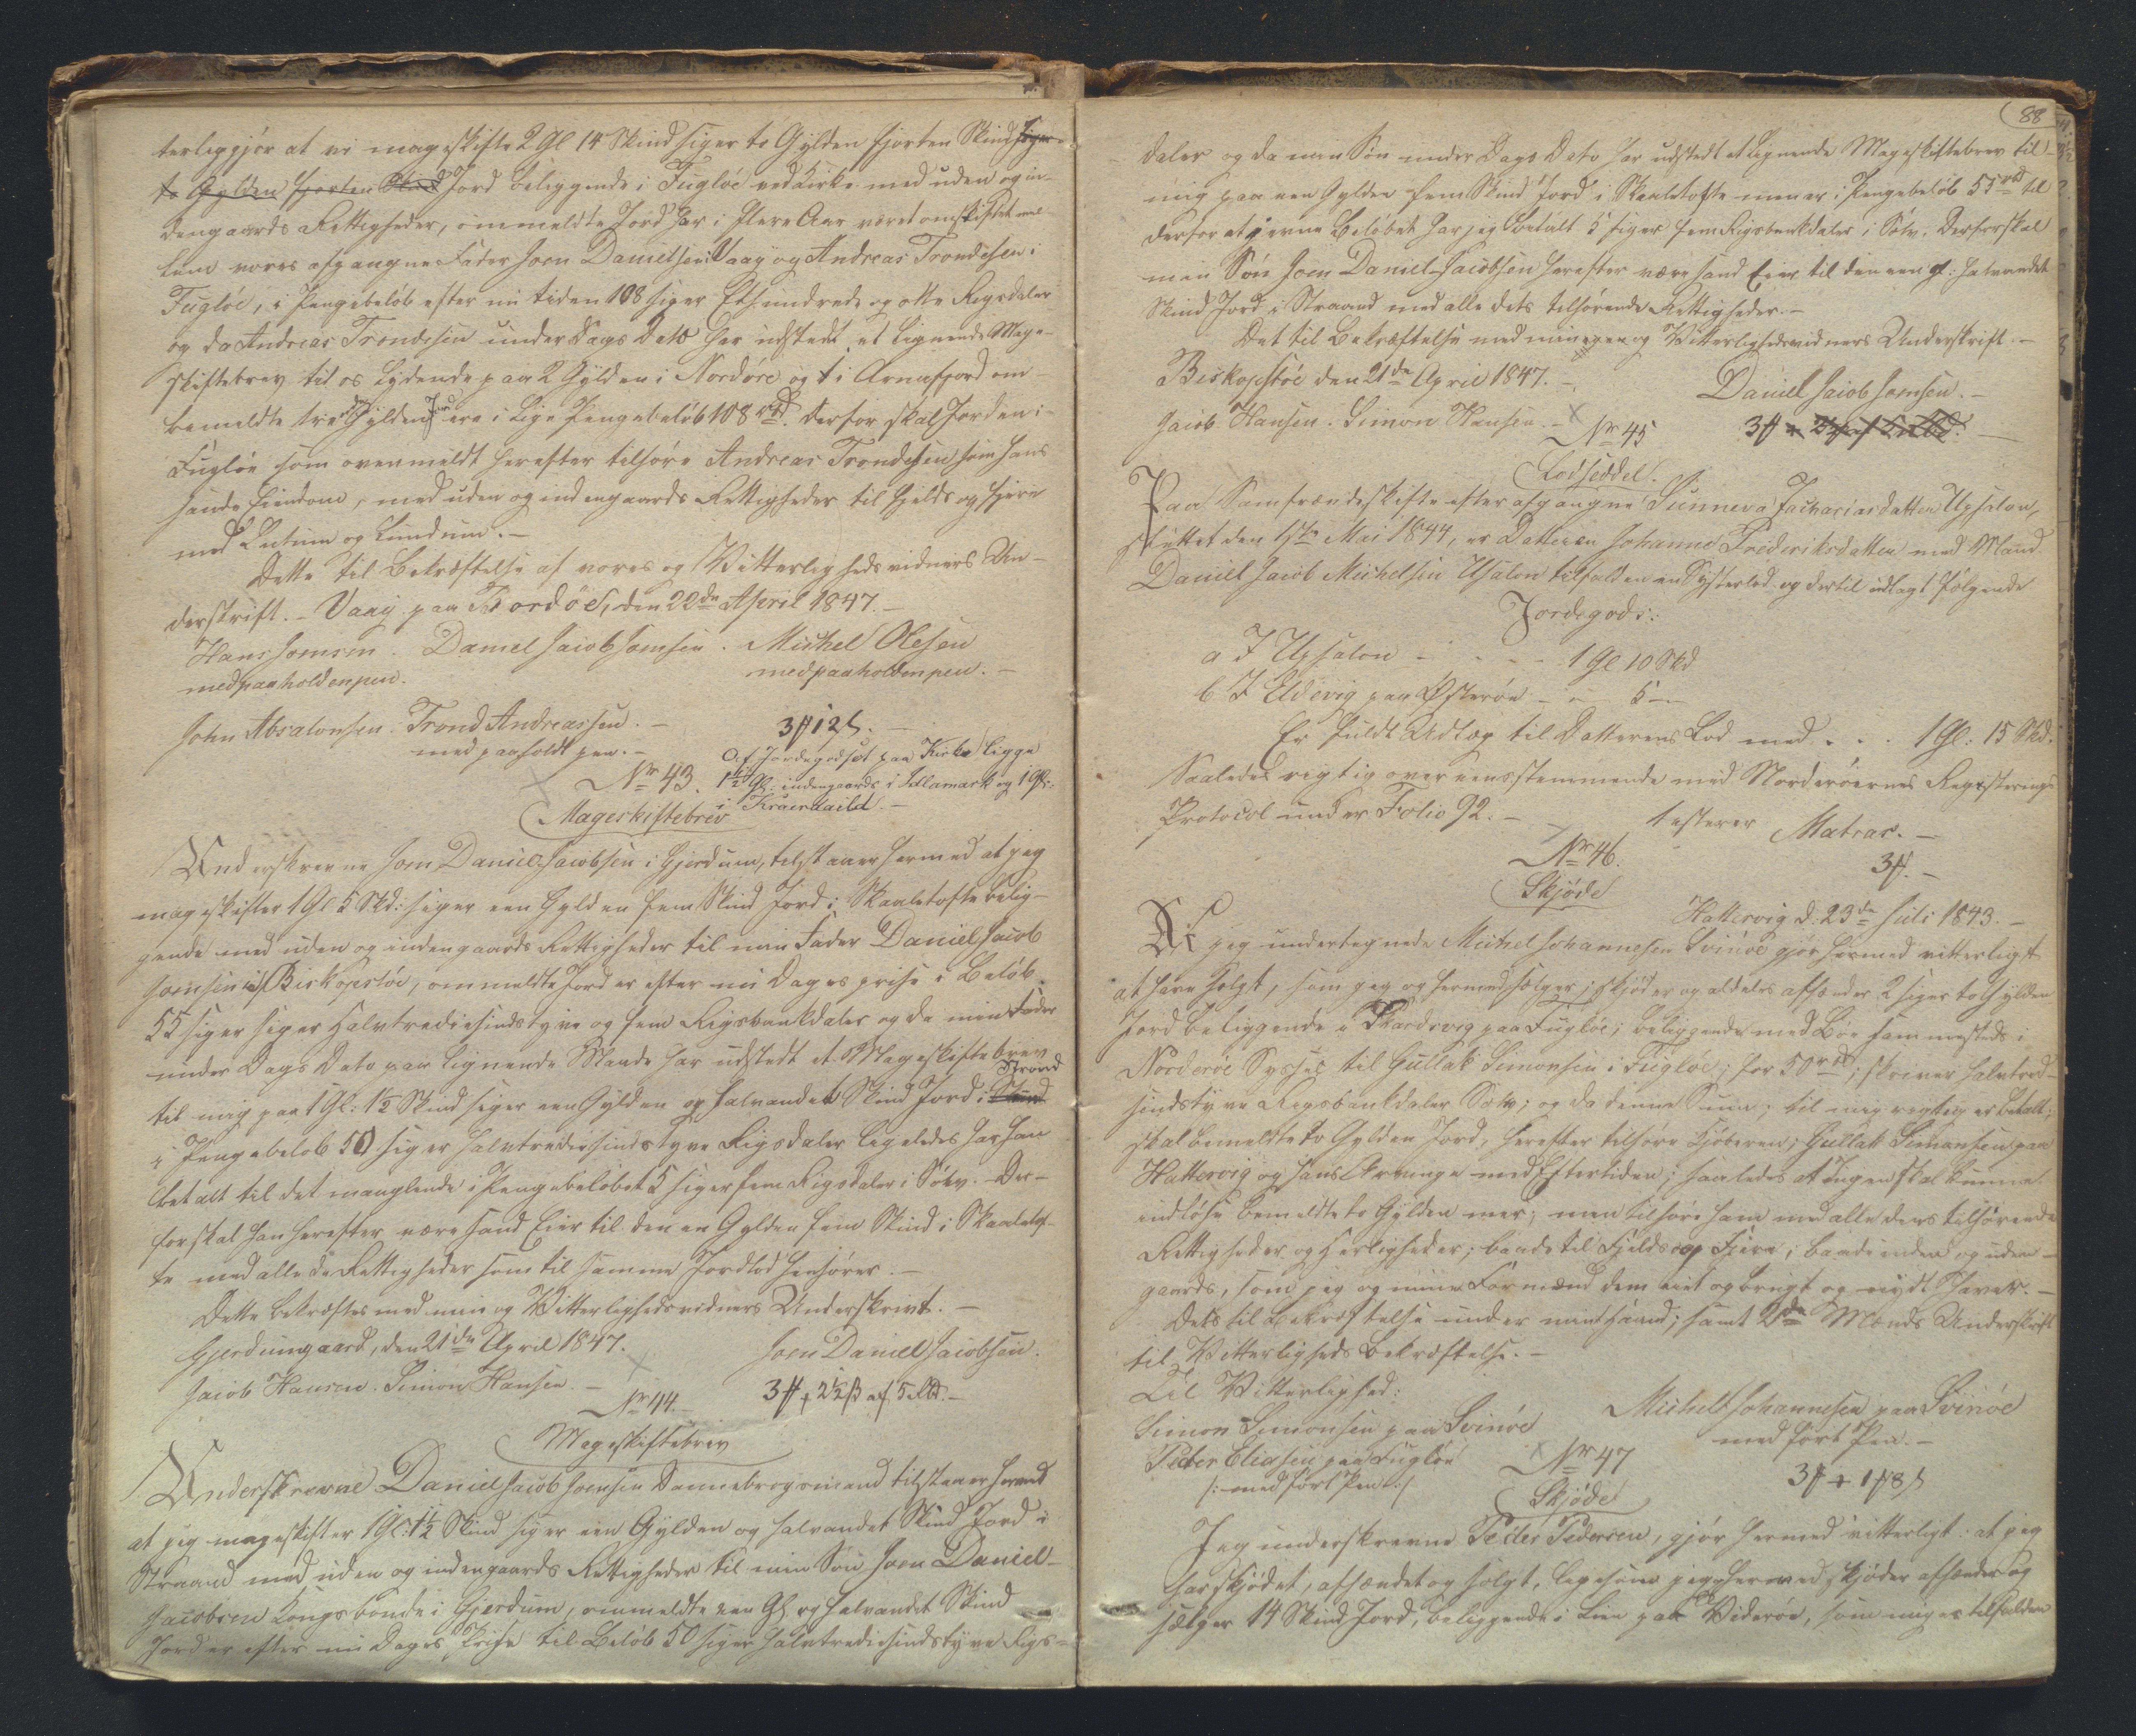 terliggjør at vi mageskifte 2 Gl 14 Skind siger to Gylden fjorten Skind siger
to Gylden fjorten Skind Jord beliggende i Fugløe ved Kirke med uden og in-
dengaards Rettigheder, ommeldte Jord har i flere Aar været omskiftet mel-
lem vores afgangne Fader Joen Danielsen i Vaag og Andreas Trondesen i
Fugløe, i Pengebeløb efter nu tiden 108 siger Ethundrede og otte Regsdaler
og da Andreas Trondesen under Dags Dato har udstedt et lignende Mage-
skiftebrev til os lydende paa 2 Gylden i Nordøre og 1 i Arnafjord om-
bemeldte tre Gylden Jord ere i lige Pengebeløb 108 rbd. Derfor skal Jorden i
Fugløe som ovenmeldt herefter tilhøre Andreas Trondesen som hans
sande Eiendom, med uden og indengaards Rettigheder til Fjelds og Fjere
med Lutum og Lundum. -
Dette til Bekræftelse af vores og Vitterligheds vidners Un-
derskrift. - Vaag paa Bordøe, den 22de April 1847. -
Hans Joensen. Daniel Jacob Joensen. Michel Olesen
medpaaholdenpen. medpaaholdenpen. -
John Absalonsen. Trond Andreassen. - 3 # 12 s. -
med paaholdt pen. - Af Jordegodset paa Kirke ligge
No 43. 1½ Gl: indengaards i Idlamark og 1 Gl:
Mageskiftebrev i -
Underskrevne Joen Daniel Jacobsen i Gjerdum, tilstaaer hermed at jeg
mageskifter 1 Gl 5 Skd: siger een Gylden fem Skind Jord i Skaaletofte belig-
gende med uden og indengaards Rettigheder til min Fader Daniel Jacob
Joensen i Biskopstøe, ommeldte Jord er efter nu Dages prise i Beløb
55 siger siger halvtrediesindstyve og fem Rigsbankdaler og da min Fader
under Dags Dato paa lignende Maade har udstedt et Mageskiftebrev
til mig paa 1 Gl: 1½ Skind siger een Gylden og halvandet Skind Jord i Strand
i Pengebeløb 50 siger halvtrediesindstyve Rigsdaler ligeledes har han
betalt til det manglende i Pengebeløbet 5 siger fem Rigsdaler i Sølv. - Der-
for skal han herefter være sand Eier til den en Gylden fem Skind i Skaaletof-
te med alle de Rettigheder som til samme Jordlod henhører. -
Dette bekræftes med min og Vitterlighedsvidners Underskrivt. -
Gjerdumgaard, den 21de April 1847. Joen Daniel Jacobsen.
Jacob Hansen. Simon Hansen. -
No 44. - 3 # + 2½ ß af 5 Rd. -
Mageskiftebrev
Underskrevne Daniel Jacob Joensen Dannebrogsmand tilstaaer hermed
at jeg mageskifter 1 Gl: 1½ Skind siger een Gylden og halvandet Skind Jord i
Straand med uden og indengaards Rettigheder til min Søn Joen Daniel-
Jacobsen Kongsbonde i Gjerdum, ommeldte een Gl og halvandet Skind
Jord er efter nu Dages Prise til Beløb 50 siger halvtrediesindstyve Rigs-
88
daler og da min Søn under Dags Dato har udstedt et lignende Mageskiftebrev til
mig paa een Gylden fem Skind Jord i Skaaletofte men er i Pengebeløb 55 rbd til
derfor at jevne Beløbet har jeg Betalt 5 siger fem Rigsbankdaler i Sølv. Derfor skal
min Søn Joen Daniel Jacobsen herefter være sand Eier til den een gl: halvandet
Skind Jord i Straand med alle dets tilhørende Rettigheder. -
Det til Bekræftelse med min egen og Vitterlighedsvidners Underskrift. -
Biskopstøe den 21de April 1847. - Daniel Jacob Joensen. -
Jacob Hansen. Simon Hansen. -
No 45 3 #
Lodseddel.
Paa Samfrændeskifte efter afgangne Sunneva Zachariasdatter Upsalon,
sluttet den 1ste Mai 1844, er Datteren Johanne Frideriksdatter med Mand
Daniel Jacob Michelsen Upsalon tilfalden en Systerlod og dertil udlagt følgende
Jordegods:
a I Upsalon - - - - 1 Gl 10 Skd
b I Eldevig paa Østerøe - - 5 -
Er fuldt Udlæg til Datterens Lod med . . . 1 Gl: 15 Skd.
Saaledes rigtig overeensstemmende med Norderøernes Registrerings
Protocol under Folio 92. - testerer Matras. -
No 46. 3 #. -
Skjøde
Hattervig d. 23de Juli 1843. -
At jeg undertegnede Michel Johannesen Svinøe gjør hermed vitterligt
at have solgt, som jeg og hermed sælger; skjøder og aldeles afhænder 2 siger to Gylden
Jord beliggende i Skardsvig paa Fugløe; beliggende med Bøe sammesteds i
Norderøe Syssel til Gullak Simonsen i Fugløe; for 50 rbd; skriver halvtred-
sindstyve Regsbankdaler Sølv; og da denne Sum; til meg rigtig er betalt;
skal bemeldte to Gylden Jord, herefter tilhøre Kjøberen; Gullak Simonsen paa
Hattervig og hans Arvinge med Eftertiden; saaledes at Ingen skal kunne
indløse bemeldte to Gylden mer; men tilhøre ham med alle dens tilhørende
Rettigheder og Herligheder; baade til Fjelds og Fjere; baade inden og uden-
gaards, som jeg og mine Formænd dem eiet og brugt og nydt haver. -
Dets til Bekræftelse under min Haand; samt 2de Mænds Underskrift
til Vitterligheds Bekræftelse. -
Til Vitterlighed:
Simon Simonsen paa Svinøe Michel Johannesen paa Svinøe
Peder Eliasen paa Fugløe med ført Pen. -
/: med ført Pen :/ No 47
Skjøde 3 # + 1 # 8 s
Jeg underskrevne Peder Pedersen, gjør hermed vitterligt: at jeg
har skjødet, afhændet og solgt, ligesom jeg hermed skjøder afhænder og
sælger 14 Skind Jord, beliggende i Lien paa Viderøe, som mig er tilfalden